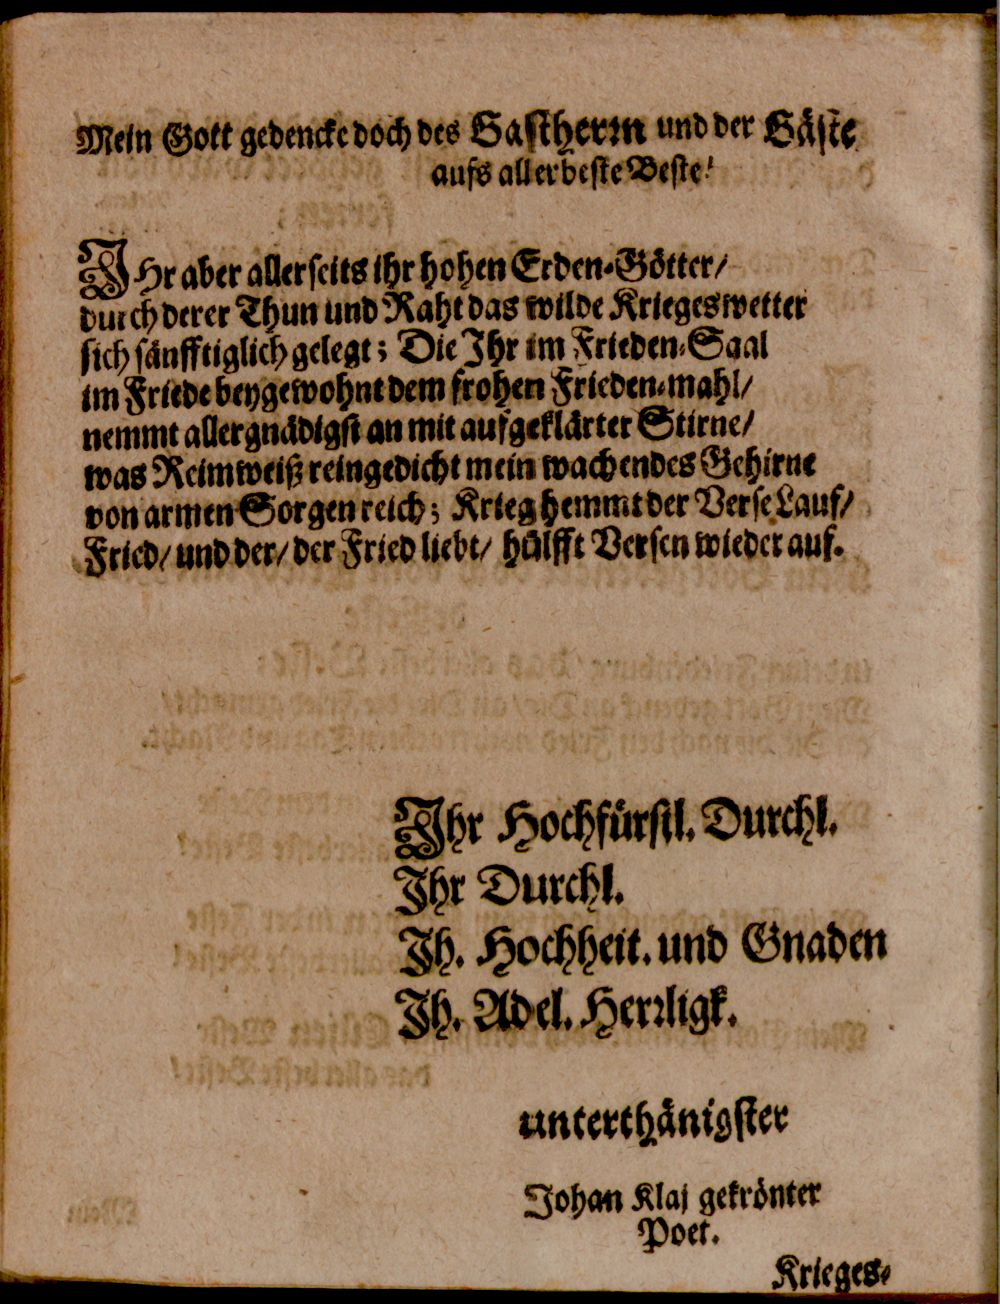 Mein Gott gedencke doch des Gastherrn und der Gäste
aufs allerbeste Beste!
IHr aber allerseits ihr hohen Erden-Götter/
durch derer Thun und Raht das wilde Krieges wetter
sich sänfftiglich gelegt; Die Ihr im Frieden-Saal
im Friede beygewohnt dem frohen Frieden-mahl/
nemmt allergnädigst an mit aufgeklärter Stirne/
was Reimweiß reingedicht mein wachendes Gehirne
von armen Sorgen reich; Krieg hemmt der Verse Lauf/
Fried/ und der/ der Fried liebt/ hülfft Versen wieder auf.
Ihr Hochfürstl. Durchl.
Ihr Durchl.
Ih. Hochheit. und Gnaden
Ih. Adel. Herrligk.
unterthänigster
Johan Klaj gekrönter
Poet.
Krieges-